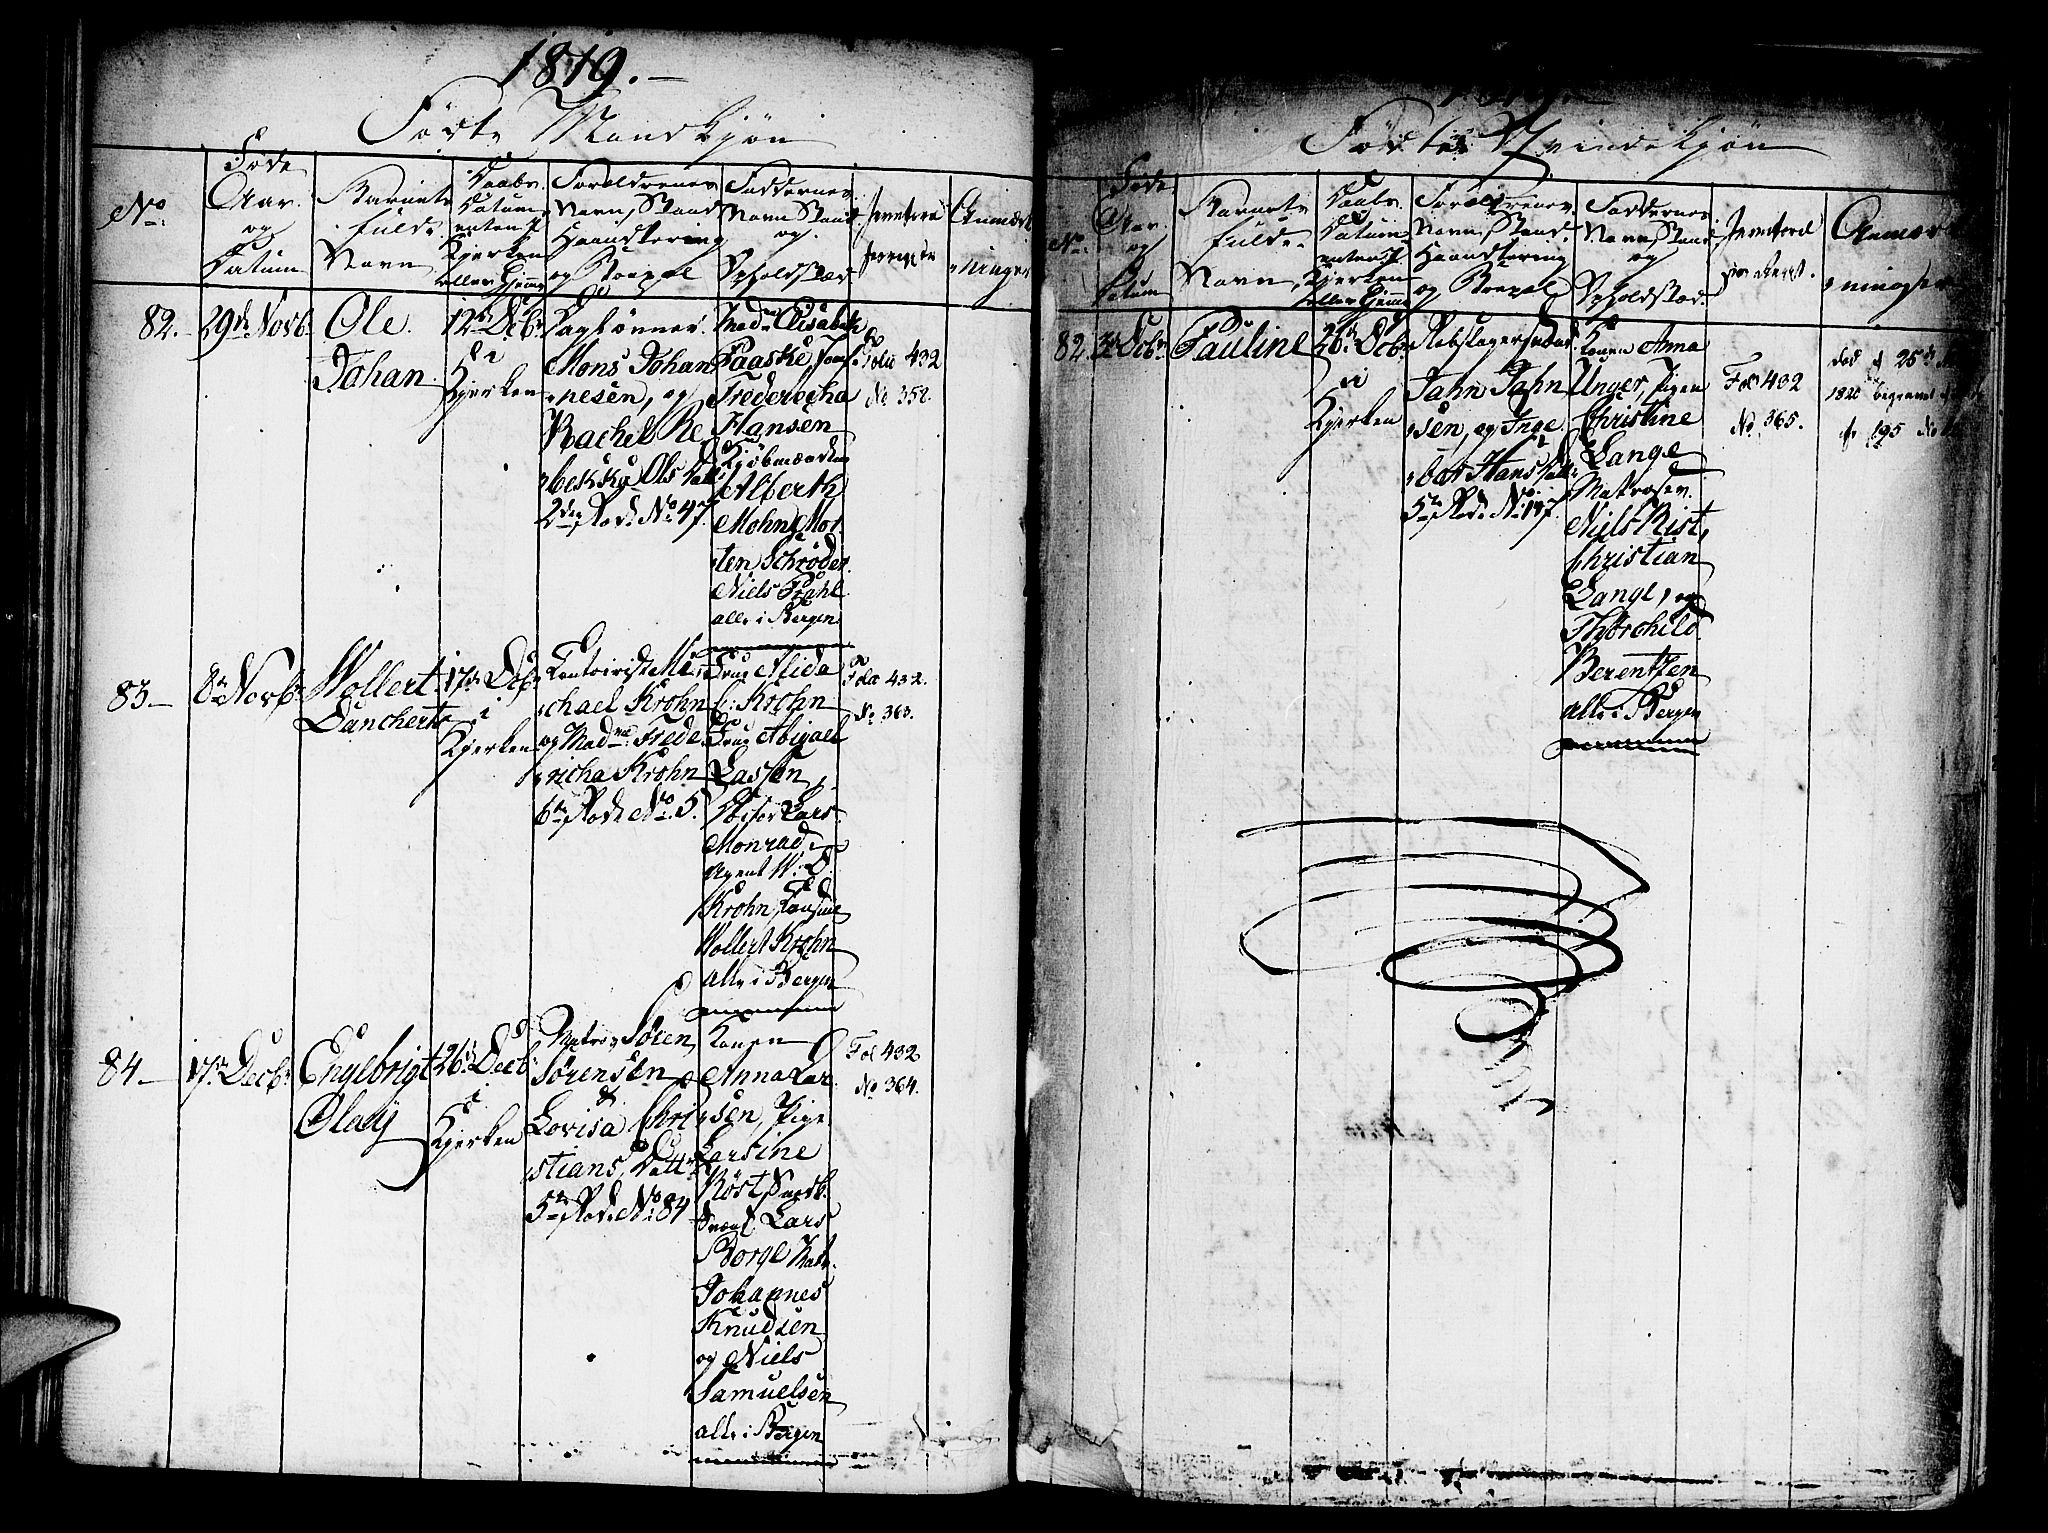 1819.
Födte Mandkjön
No.
Föde
Aar
og
Datum
Barnets
fulde
Navn
Daabs
Datum
enten i
Kjerken
eller Hjemme
Forældrenes
Navn, Stand
Haandtering
og Bopæl
Faddernes
Navn Stand
og
Opholdsstæd
Jevnförd
Anmærk
ninger
82.
29de Novb.
Ole
Johan
12te Decbr
i
Kjerken
Dagl&oslash;nner
Mons Johan
nesen, og
Rachel Re
bekka Ols Datt
2den Rode No 47.
Madme Elisabeth
Paaske, Jomf.
Frederecha
Hansen
Kjöbmændene
Alberth
Mohn, Mor
ten Schrøder
Niels Prahl
alle i Bergen
Folio 432
No 358.
83
8de Novbr
Wollert
Danckerts
17de Decbr
i
Kjerken
Contoirist Mi
chael Krohn
og Madme Frede
richa Krohn
6te Rode No. 5.
Frue Alida
C: Krohn
Frue Abigael
Lassen,
Lars
Monrad
Agent W. D.
Krohn,
Wollert Krohn
alle i Bergen
Folio 432.
No 363.
84
17de Decbr
Engebrigt
Olaij
26de Decbr
i
Kjerken
Matros Søren
Sørensen
&
Lovisa Chri
stians Datter
5te Rode No 84
Konen
Anna Lar
sen, Pige
Larsine
Røst, Smed
Svend Lars
Borge Matr.
Johannes
Knudsen
og Niels
Samuelsen
alle i Bergen
Fol 432
No 364.
1819.
Födte Qvindekjön
No.
Föde
Aar
og
Datum
Barnets
fulde
Navn
Daabs
Datum
enten i
Kjerken
eller Hjemme
Forældrenes
Navn, Stand
Haandtering
og Bopæl
Faddernes
Navn, Stand
og
Opholdsstæd.
Jevnförd
Anmærk
ninger
82.
3de Decbr
Pauline
26de Decbr
i
Kjerken
Rebslagersvend
Jahn Jahn
sen, og Inge
bor Hans Datt
5te Rode No 197.
Konen Anna
Unger, Pigen
Christine
Lange
Matroser
Niels Rist,
Christian
Lange, og
Thorchild
Berentzen
alle i Bergen
Fol 432
No 365.
død d 25de
1820 begravet
195 No